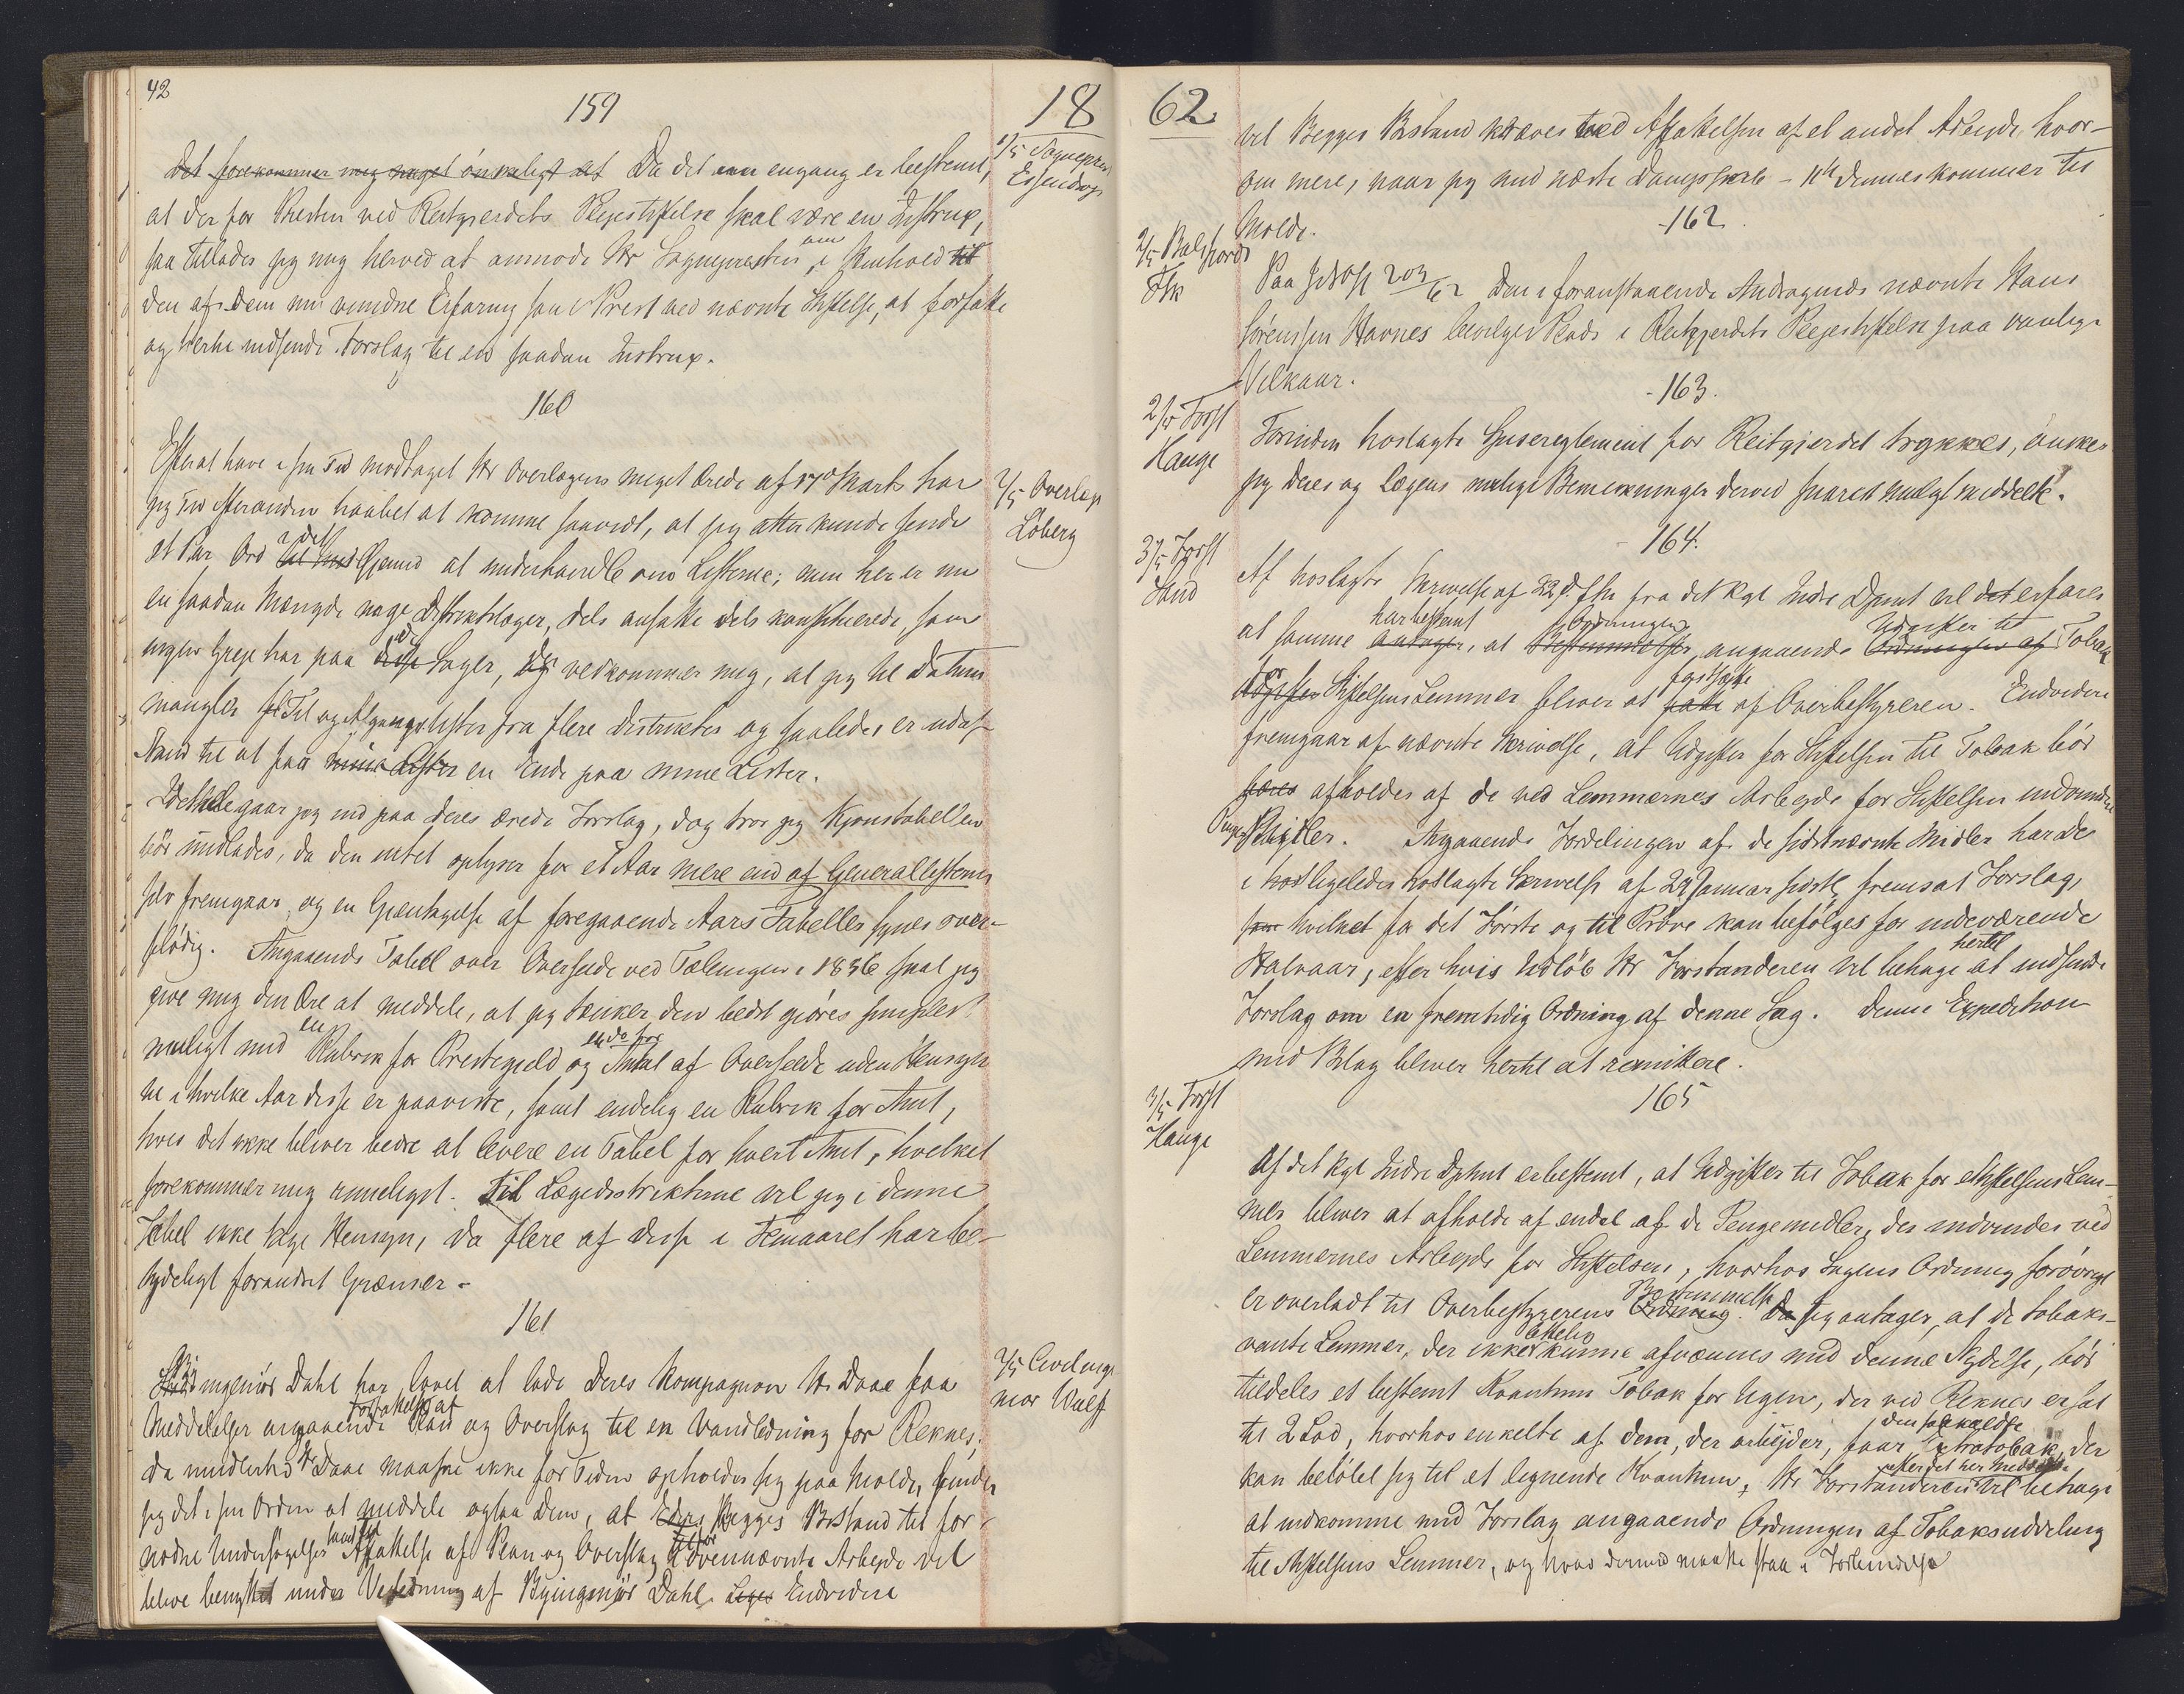 42
159
18
1/5 Sogneprest
Essendrop
Det forekommer mig noget ønskeligt at Da det nu engang er bestemt,
at der for Presten ved Reitgjerdets Plejestiftelse skal være en Instrux,
saa tillader jeg mig herved at anmode Hr Sognepresten om, i Henhold til
den af Dem nu vundne Erfaring som Prest ved nævnte Stiftelse, at forfatte
og hertil indsende Forslag til en saadan Instrux.
160
2/5 Overlæge
Løberg
Efter at have i sin Tid modtaget Hr Overlægens meget ærede af 17de Marts har
jeg Tid efter anden haabet at komme saavidt, at jeg atter kunde sende
et Par Ord til med Hensyn det Gjenmæle at underhandle om Listerne; men her er nu
en saadan Mængde nye Distriktslæger, dels ansatte dels konstituerede, som
ingen Greje har paa disse de Sager, der vedkommer mig, at jeg til Datum
mangler Til og Afgangslister fra flere Distrikter og saaledes er udaf
Stand til at faa mine Lister en Ende paa mine Lister.
I det Hele gaar jeg ind paa Deres ærede Forslag, dog tror jeg Kjønstabellen
bör undlades, da den intet oplyser for et Aar mere end af Generallisterne
selv fremgaar, og en Gjentagelse af foregaaende Aars Tabeller synes over-
flödig. Angaaende Tabel over Overseede ved Tælingen i 1856 skal jeg
give mig den Ære at meddele, at jeg tænker den bedst gjöres simplest
muligt med en Rubrik for Prestegjeld og en do for Antal af Overseede uden Hensyn
til i hvilke Aar disse er paaviste, samt endelig en Rubrik for Amt,
hvis det ikke bliver bedre at levere en Tabel for hvert Amt, hvilket
forekommer mig rimeligst. Til Lægedistrikterne vil jeg i denne
Tabel ikke tage Hensyn, da flere af disse i Femaaret har be-
tydeligt forandret Grænser.
161
2/5 Civilinge-
niør Wulff
By Stads ingeniör Dahl har lovet at lade Deres Kompagnon Hr Daae faa
Meddelelser angaaende Forfattelse af Plan og Overslag til en Vandledning for Reknes.
Da imidlertid Hr Daae maaske ikke for Tiden opholder sig paa Molde, finder
jeg det i sin Orden at meddele ogsaa Dem, at Eders Begges Bistand til for
nødne Undersögelser samt til Affattelse af Plan og Overslag til for ovennævnte Arbejde vil
blive benyttet under Veiledning af Byingeniör Dahl. Liges Endvidere
62
vil Begges Bistand kræves ved Affattelsen af et andet Arbeide, hvor-
om mere, naar jeg med næste Dampskib - 11te dennes kommer til
Molde.
162.
2/5 Balsfjords
Ftk
Paa J.No 203/62 Den i foranstaaende Andragende nævnte Hans
Sörenssen Havnes bevilges Plads i Reitgjerdets Plejestiftelse paa vanlige
Vilkaar.
163.
2/5 Forst
Hauge
Forinden hoslagte Husreglement for Reitgjerdet trykkes, önskes
jeg Deres og Lægens mulige Bemerkninger derved snarest muligt meddelt.
164.
3/5 Forst
Sand
Af hoslagte Skrivelse af 22d. f.M. fra det Kgl Indre Dpmt vil det erfares
at samme antager har bestemt, at Bestemmelser Ordningen angaaende Ordningen af Udgifter til Tobak
Udgifter for Stiftelsens Lemmer bliver at fatte fastsætte af Overbestyreren. Endvidere
fremgaar af nævnte Skrivelse, at Udgifter for Stiftelsen til Tobak bör
bæres afholdes af de ved Lemmernes Arbeyde for Stiftelsen indvundne
Penge Midler. Angaaende Fordelingen af de sidstnævnte Midler har De
i hos ligeledes hoslagte Skrivelse af 29 Januar sidstl. fremsat Forslag,
som hvilket for det Förste og til Pröve kan befölges for indeværende
Halvaar, efter hvis Udlöb Hr Forstanderen vil behage hertil at indsende
Forslag om en fremtidig Ordning af denne Sag. Denne Expedition
med Bilag bliver hertil at remittere.
165
3/5 Forst
Hauge
Af det Kgl Indre Dptmt er bestemt, at Udgifter til Tobak for Stiftelsens Lem-
mer bliver at afholde af endel af de Pengemidler, der indvindes ved
Lemmernes Arbeyde for Stiftelsen, hvorhos Sagens Ordning forövrigt
er overladt til Overbestyrerens Ordning Bestemmelse. Da Jeg antager, at de tobaks-
vante Lemmer, der ikke lettelig kunne afvænnes med denne Nydelse, bör
tildeles et bestemt Kvantum Tobak for Ugen, der ved Reknes er sat
til 2 Lod, hvorhos enkelte af dem, der arbejder, faar den saakaldte Extratobak, der
kan belöbet sig til et lignende Kvantum, Hr Forstanderen vil efter det her Meddelte behage
at indkomme med Forslag angaaende Ordningen af Tobaksuddeling
til Stiftelsens Lemmer, og hvad dermed maatte staa i Forbindelse